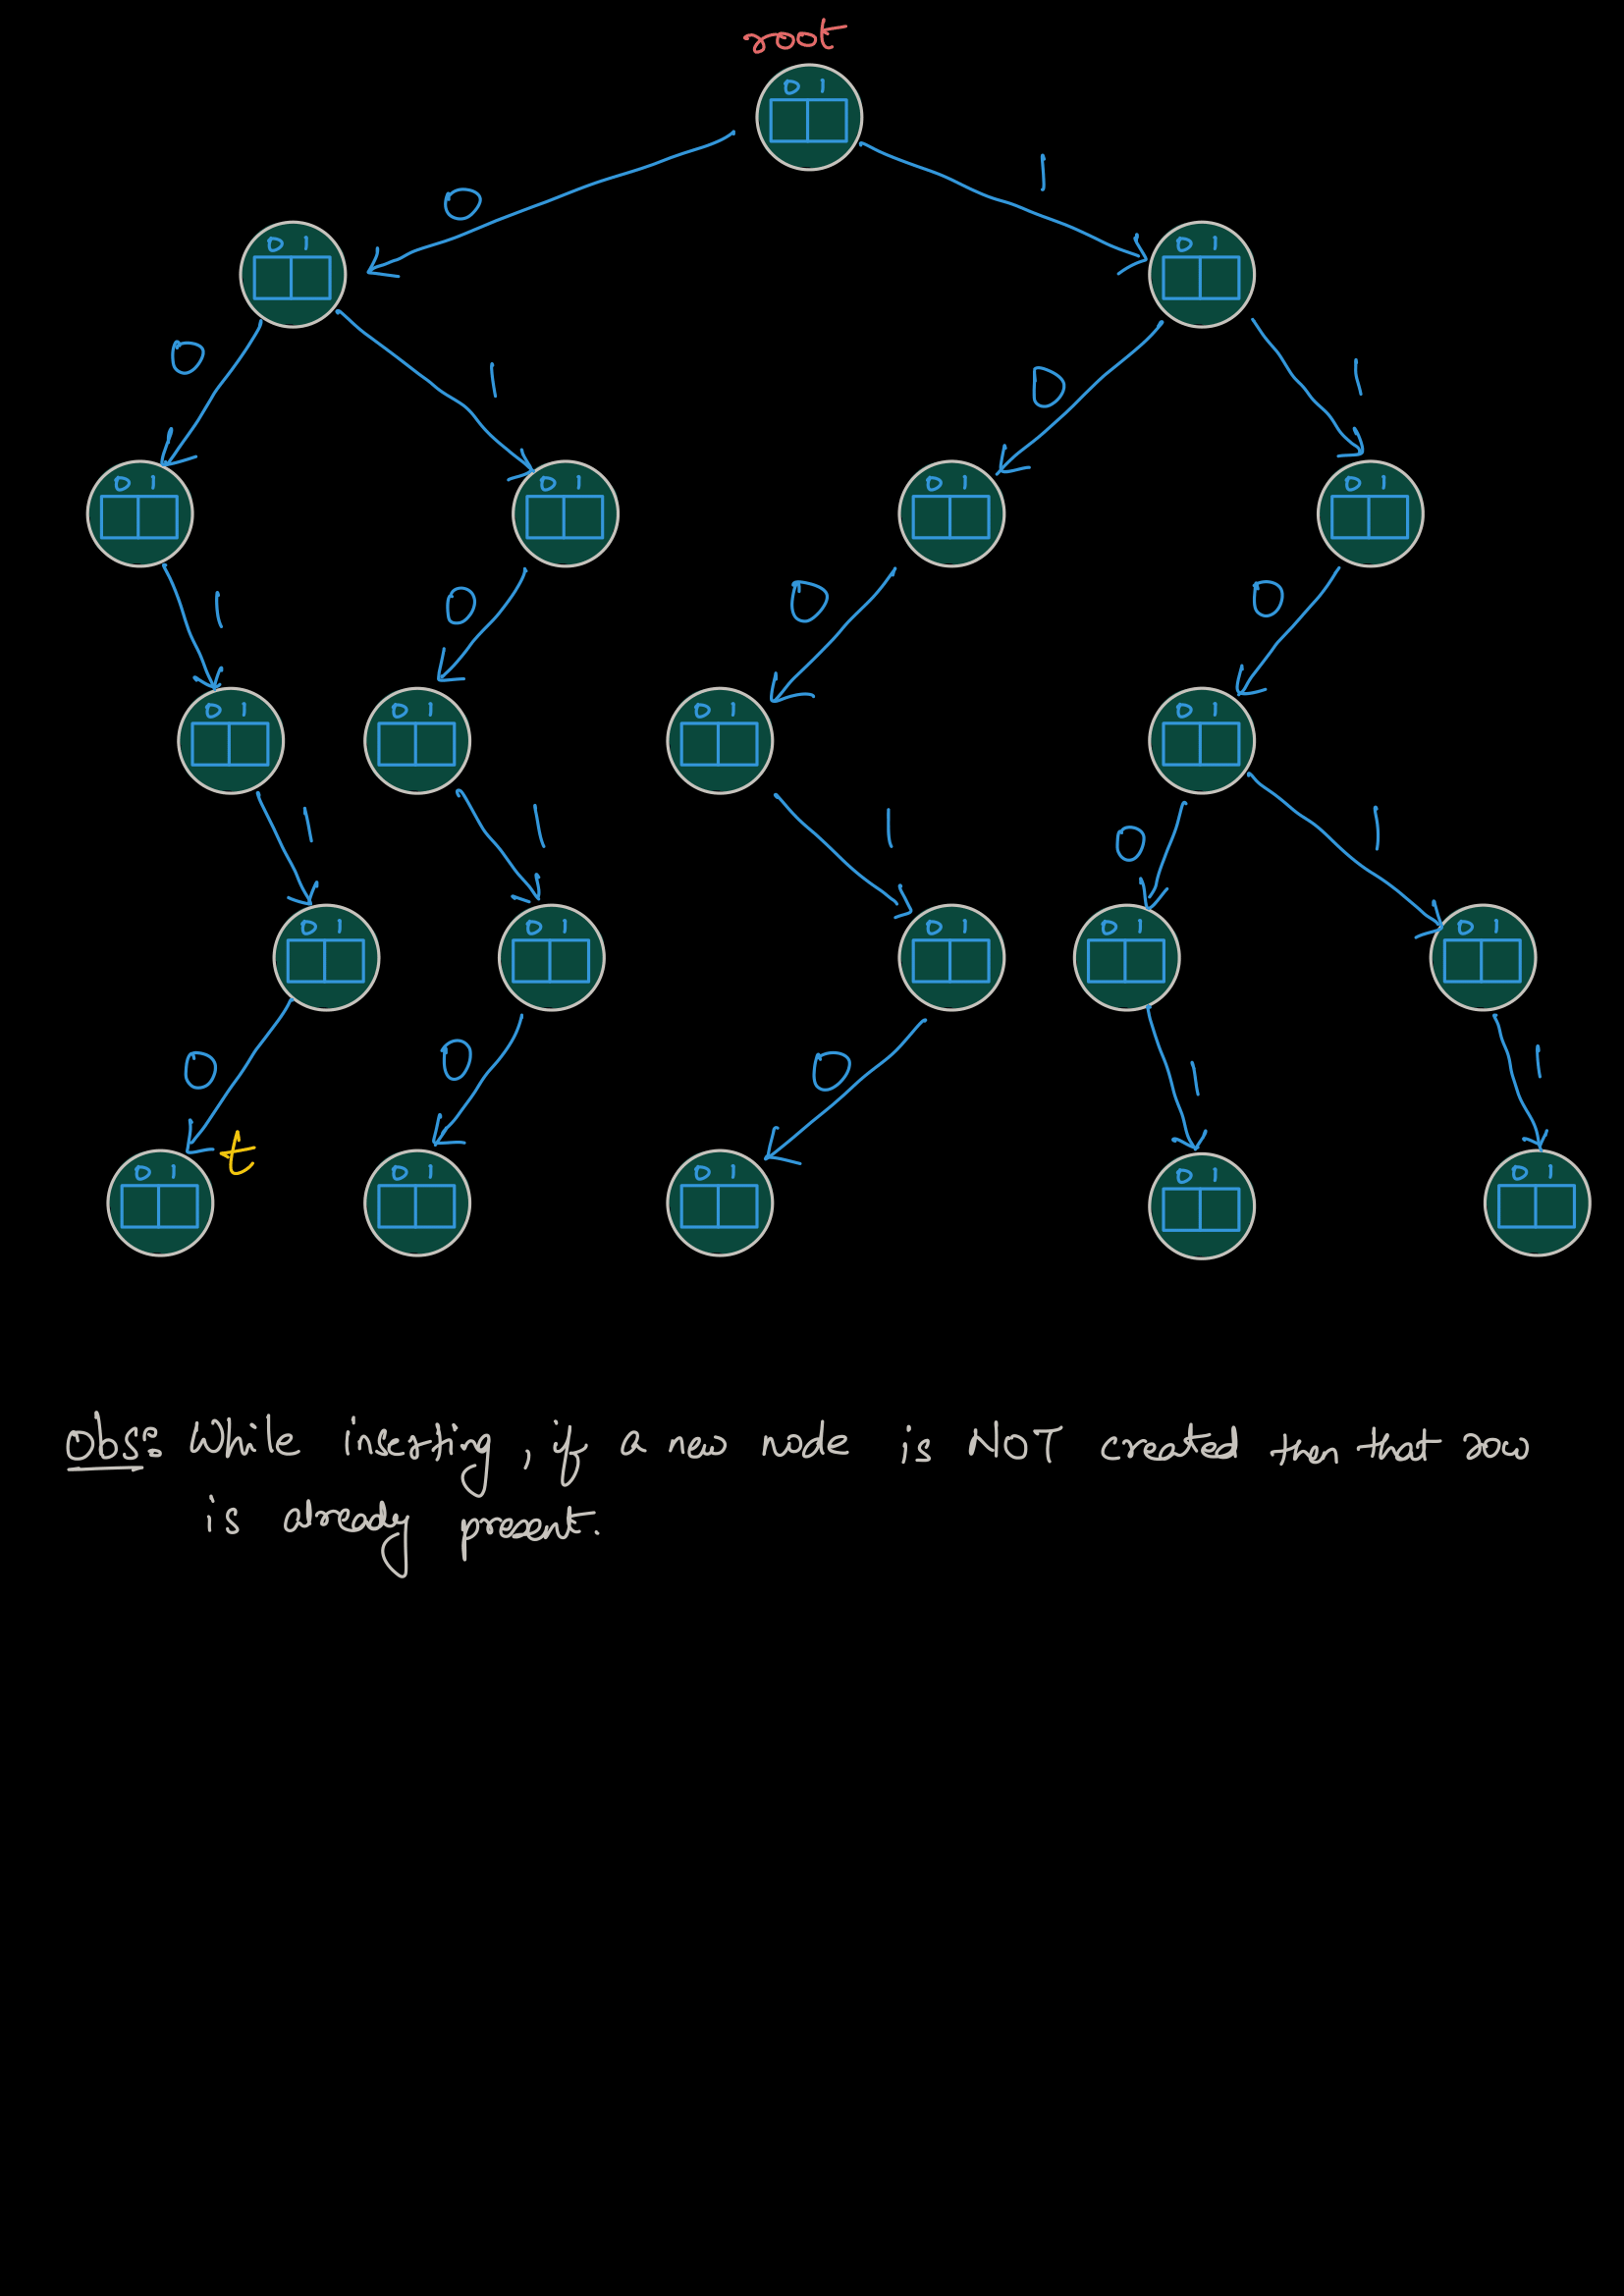 root
0 1
0 1
0 1 0 1
0 1 0 1
0 1 0 1 0 1 0 1
1 0 0 0
0 1 0 1 0 1 0 1
1 1 1 0 1
0 1 0 1 0 1 0 1 0 1
0 0 0 1 1
t
0 1 0 1 0 1 0 1 0 1
Obs: While inserting, if a new node is NOT created then that row
is already present.